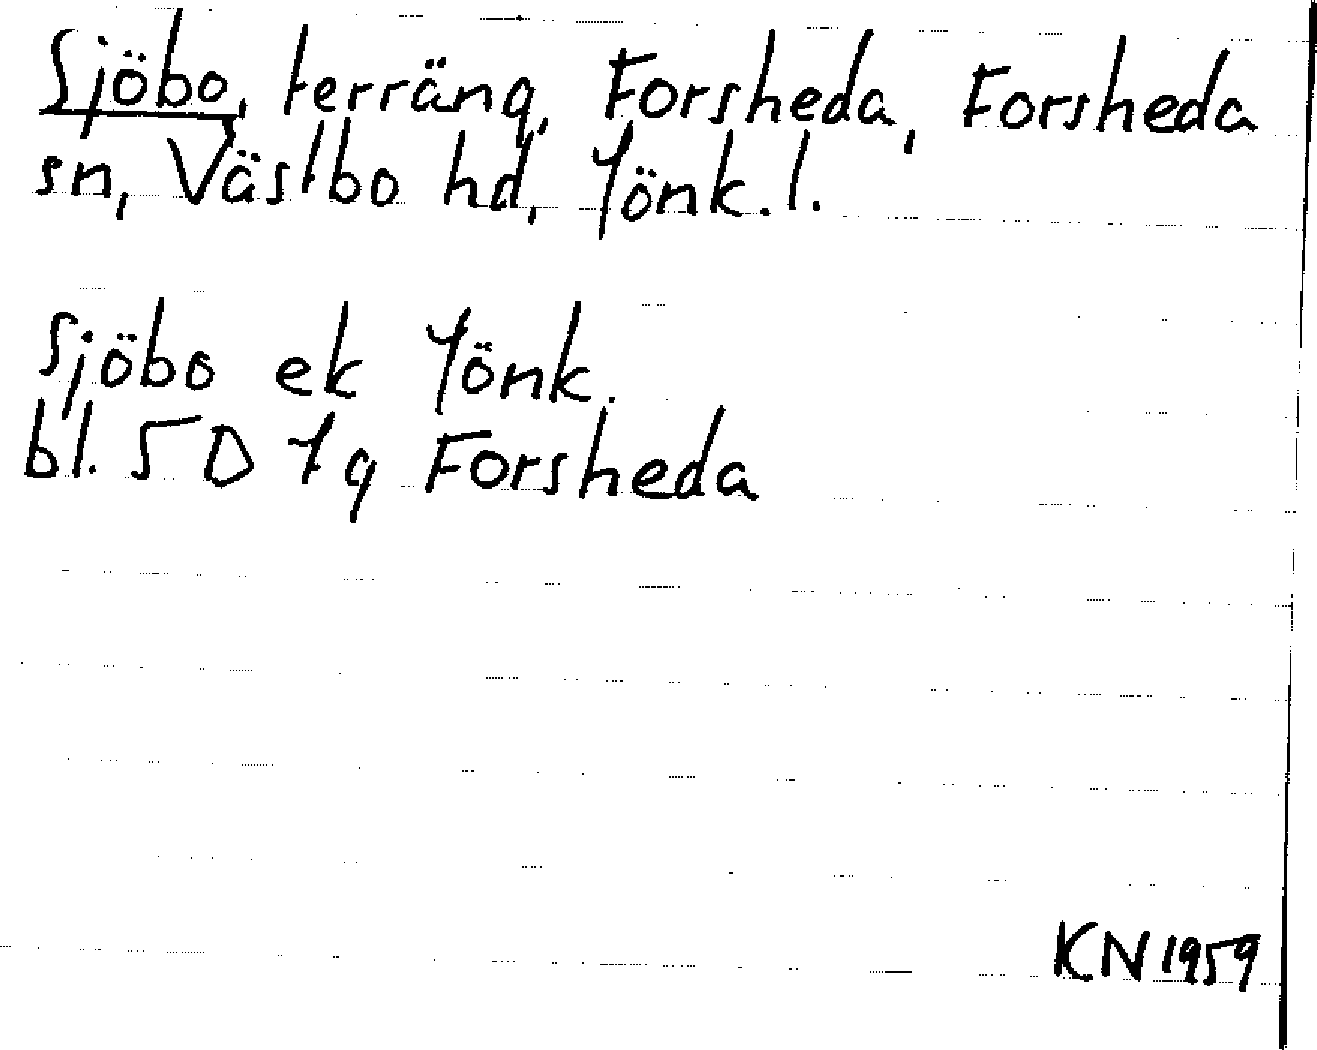 Sjöbo, terräng, Forsheda, Forsheda
sn, Västbo hd, Jönk. l.
Sjöbo ek Jönk.
bl. 5 D 7 g Forsheda
KN 1959